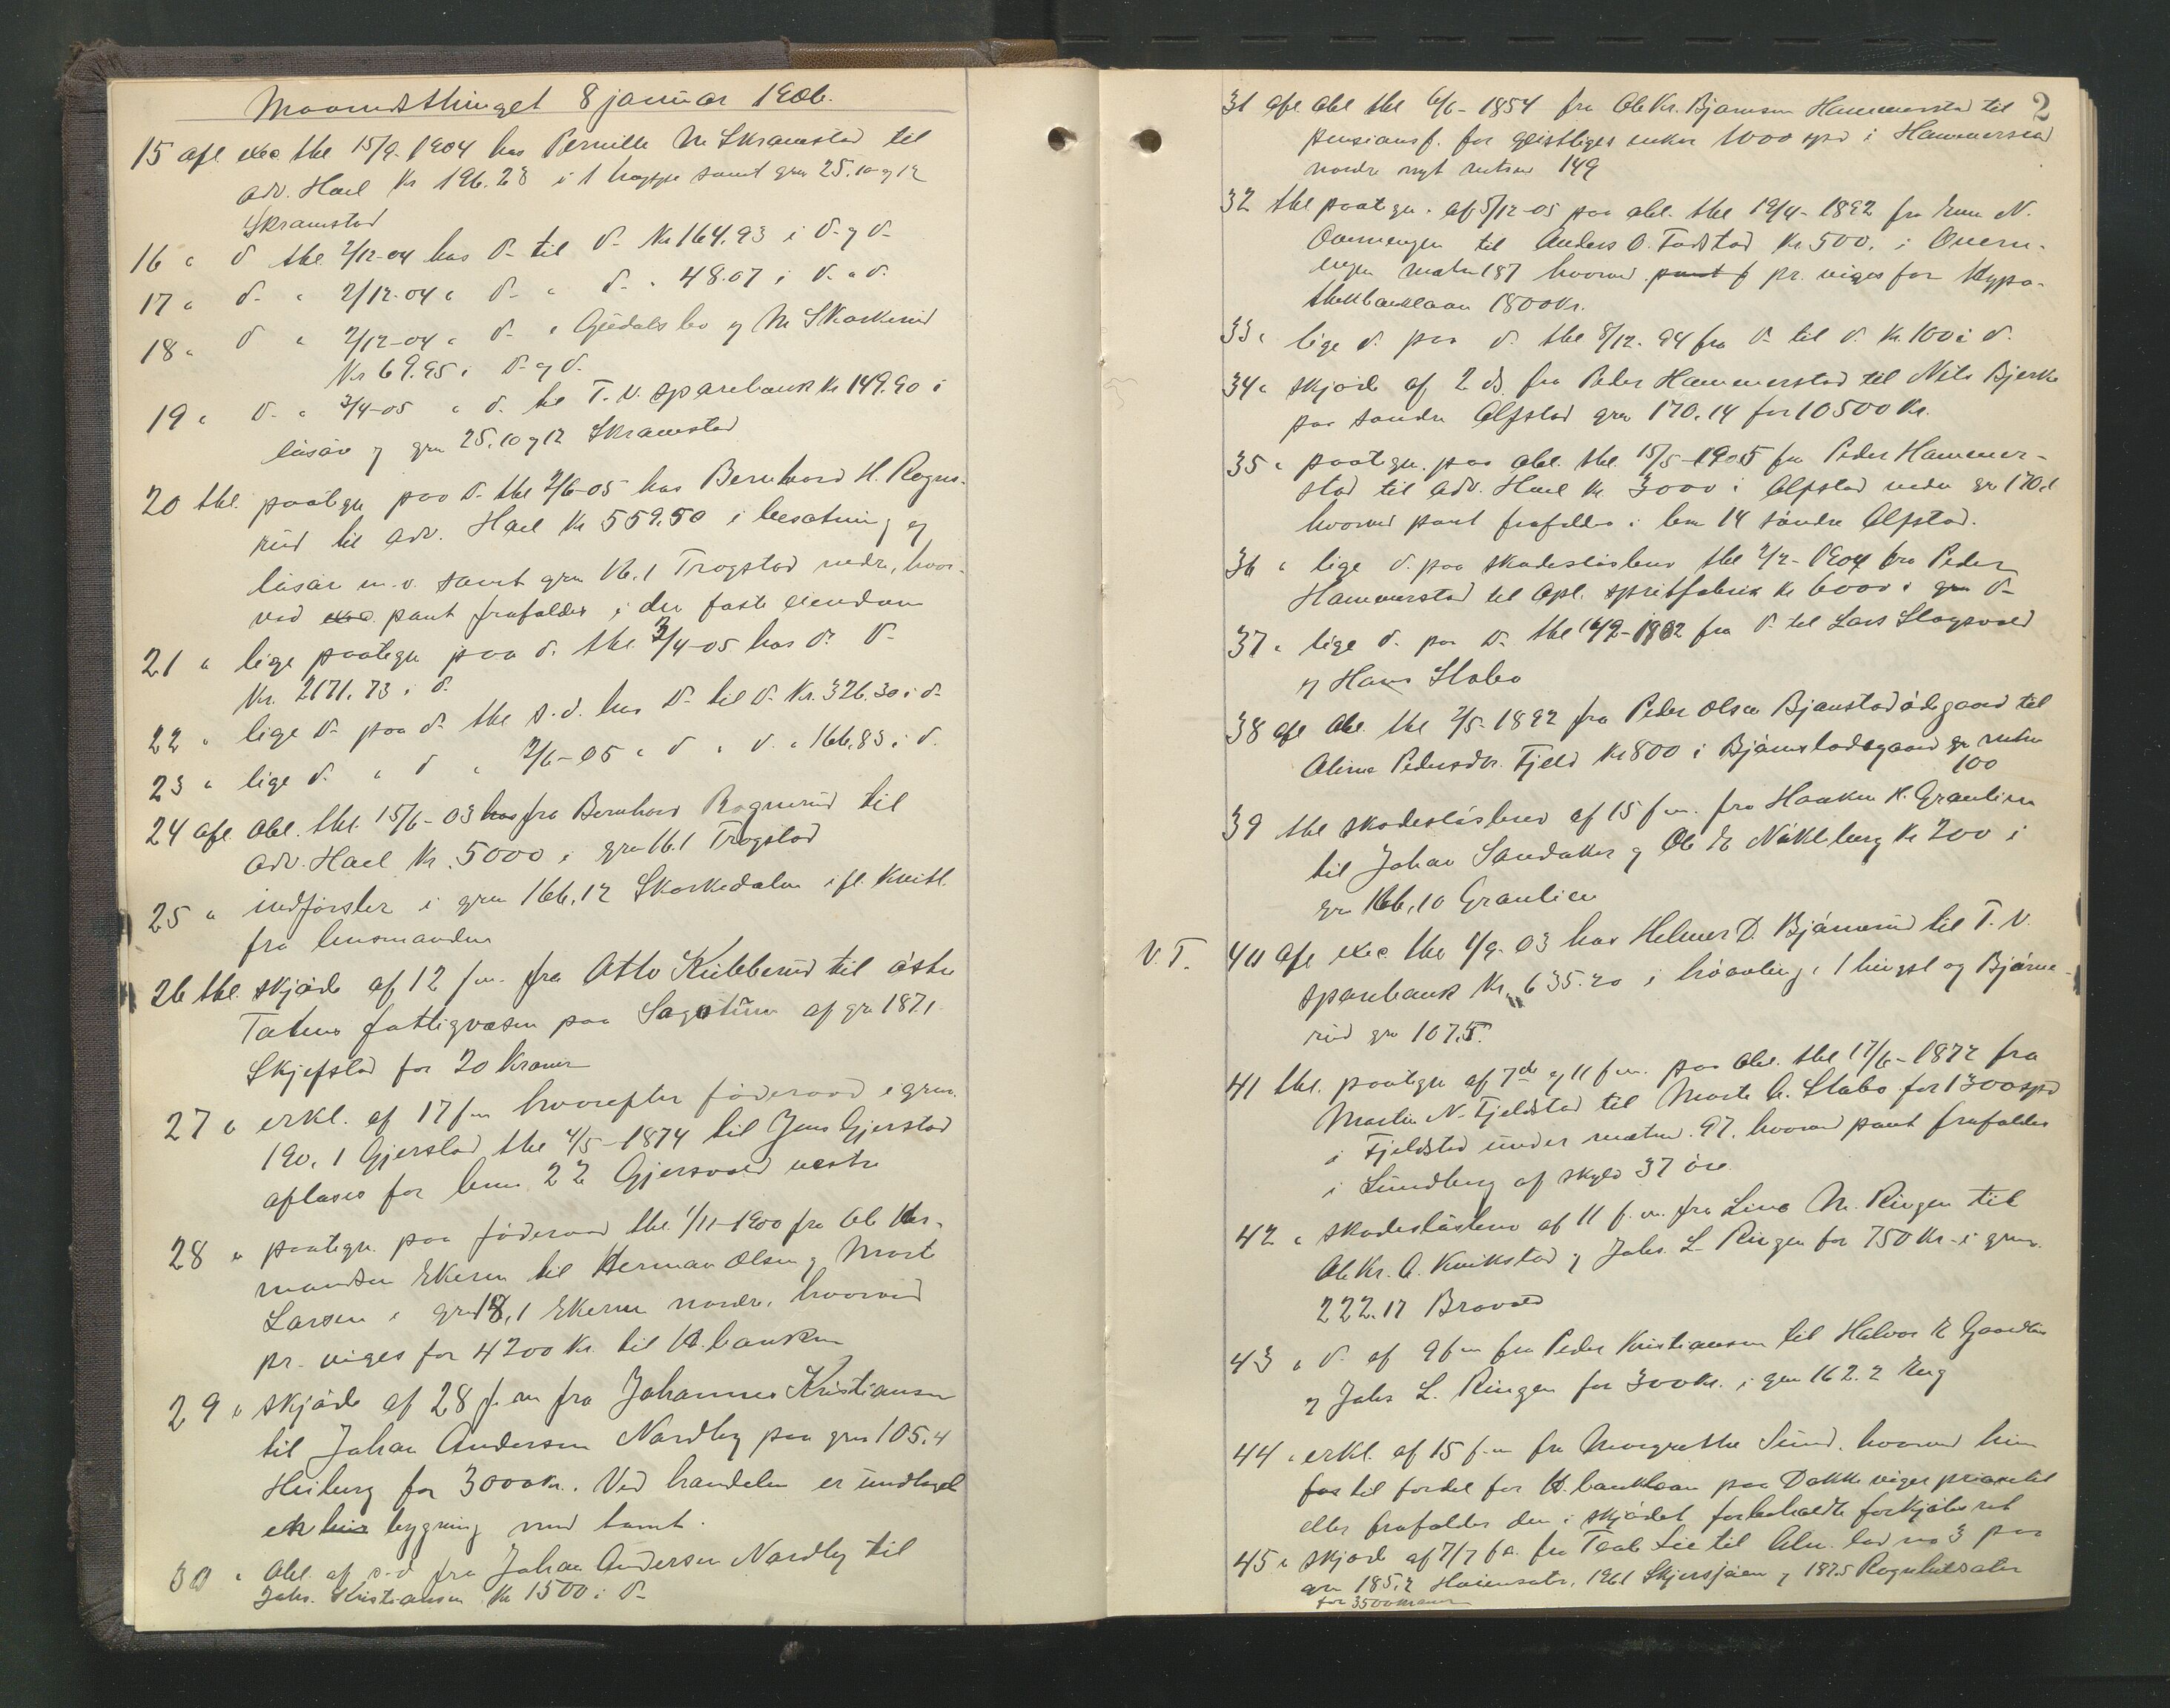 Maanedsthinget 8 januar 1906.
15 afl. exec thl 15/9-1904 hos Pernille M Skramstad til
adv. Hoel Kr 196.28 i 1 hoppe samt grn 25.10 og 12
Skramstad
16 " d thl. 2/12-04 hos d- til d- Kr 164.93 i d- og d-
17 " d- " 2/12-04 " d- " d- " 48.07 i d. " d.
18 " d " 2/12-04 " d- " Gjedals bo og M Skaskerud
Kr 69.95 i d- og d.
19 " d. " 3/4-05 " d. til T. V. sparebank Kr 149.90 i
løsøre og grn 25.10 og 12 Skramstad
20 thl. paategn paa d- thl 2/6-05 hos Bernhard H. Rogne-
rud til adv. Hoel Kr 559.50 i besætning og
løsøre m.v. samt grn 16.1 Trogstad nedre, hvor-
ved pant frafaldes i den faste eiendom
21 " lige paategn paa d. thl. 3/4-05 hos d. d-
Kr. 2171.73 i d-
22 " lige d- paa d- thl s.d. hos d- til d- Kr. 326.30 i d-
23 " lige d. " d " 2/6-05 " d " d. " 166.83 i d.
24 afl. obl. thl. 15/6-03 fra Bernhard Rognerud til
adv. Hoel Kr. 5000 i grn 16.1 Trogstad
25 " indførsler i grn 166.12 Skaskedalen ifl. kvitt.
fra lensmanden
26 thl. skjøde af 12 f.m. fra Otto Kubberud til østre
Totens fattigvæsen paa Sagstuen af grn 187.1
Skjefstad for 20 Kroner
27 " erkl. af 17 f.m hvorefter føderaad i grn.
190.1 Gjerstad thl 4/5-1874 til Jens Gjerstad
aflases for bnr. 22 Gjersvold vestre
28 " paategn. paa føderaad thl. 1/11-1900 fra Ole Her-
mandsen Ekeren til Herman Olsen og Marte
Larsen i grn 18.1 Ekeren nordre, hvorved
pr. viges for 4200 Kr. til H.banken
29 " skjøde af 28 f.m fra Johannes Kristiansen
til Johan Andersen Nordby paa grn 105.4
Heiberg for 3000 Kr. Ved handelen er undtaget
en bygning med tomt.
30 " Obl. af s.d fra Johan Andersen Nordby til
Johs. Kristiansen Kr 1500 i d-
2
31 afl obl thl 6/6-1854 fra Ole Kr. Bjørnsen Hammerstad til
Pensionsf. for geistliges enker 1000 spd i Hammerstad
nordre nyt mtrno 149
32 thl paategn. af 5/12-05 paa obl. thl 19/4-1892 fra Even N.
Overnengen til Anders O. Fodstad Kr. 500. i Overn-
engen matrn 187 hvorved pr. viges for Hypo-
thekbanklaan 1800 Kr.
33 " lige d. paa d. thl 8/12-94 fra d- til d. Kr. 100 i d.
34 " skjøde af 2 ds fra Peder Hammerstad til Nils Bjerke
paa søndre Alfstad grn 170.14 for 10500 Kr.
35 " paategn. paa obl. thl. 15/5-1905 fra Peder Hammer-
stad til adv. Hoel Kr. 3000 i Alfstad nedre grn 170.1
hvorved pant frafaldes i bnr 14 søndre Alfstad.
36 " lige d. paa skadesløsbrev thl 2/2-1904 fra Peder
Hammerstad til Apl. spritfabrik Kr 6000 i d-
37 " lige d. paa d. thl 16/9-1902 fra d- til Lars Slagsvold
og Hans Stabo
38 afl obl. thl 2/5-1892 fra Peder Olsen Bjørnstadødegaard til
Oline Pedersdtr. Fjeld Kr 800 i Bjørnstadødegaard matrn
100
39 thl skadesløsbrev af 15 f.m. fra Haaken K. Granlien
til Johan Sandaker og Ole E Nøkleberg Kr 200 i
grn 166.10 Granlien
V.T. 40 afl exec thl 1/9-03 hos Helmer D. Bjørnerud til T.V.
sparebank Kr. 635.20 i høavling, 1 hingst og Bjørne-
rud grn 107.5.
41 thl. paategn af 7de og 11 f.m. paa obl. thl 17/6-1872 fra
Martin N. Fjeldstad til Marte A. Stabo for 1300 spd
i Fjeldstad under matrn. 97. hvorved pant frafaldes
i Lundberg af skyld 37 øre.
42 " skadesløsbrev af 11 f.m. fra Lina M. Ringen til
Ole Kr. A. Kvikstad og Johs. L. Ringen for 750 Kr. i grn.
222.17 Bravold
43 " d. af 9 f.m fra Peder Kristiansen til Halvor E Gaardlos
og Johs L. Ringen for 300 Kr. i grn 162.2 Eng
44 " erkl. af 15 f.m fra Margrethe Sund. hvorved hun
til fordel for H.banklaan paa Dokke viger prioritet
eller frafalder den i skjødet forbeholdte forkjøbsret
45 " skjøde af 7/7 f.a. fra Lie til Alm. lod no 3 paa
grn 185.2 Høiensætr, 196.1 Skjersjøen og 187.5 Rognlidsæter
for 3500 Kroner